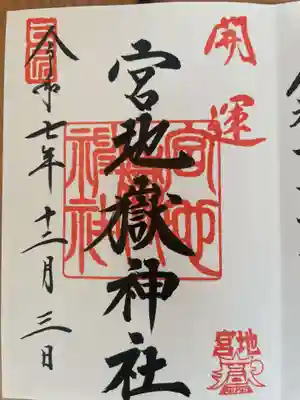 開運
宮地嶽神社
令和七年十二月三日
宮地嶽神社
宮地
嶽